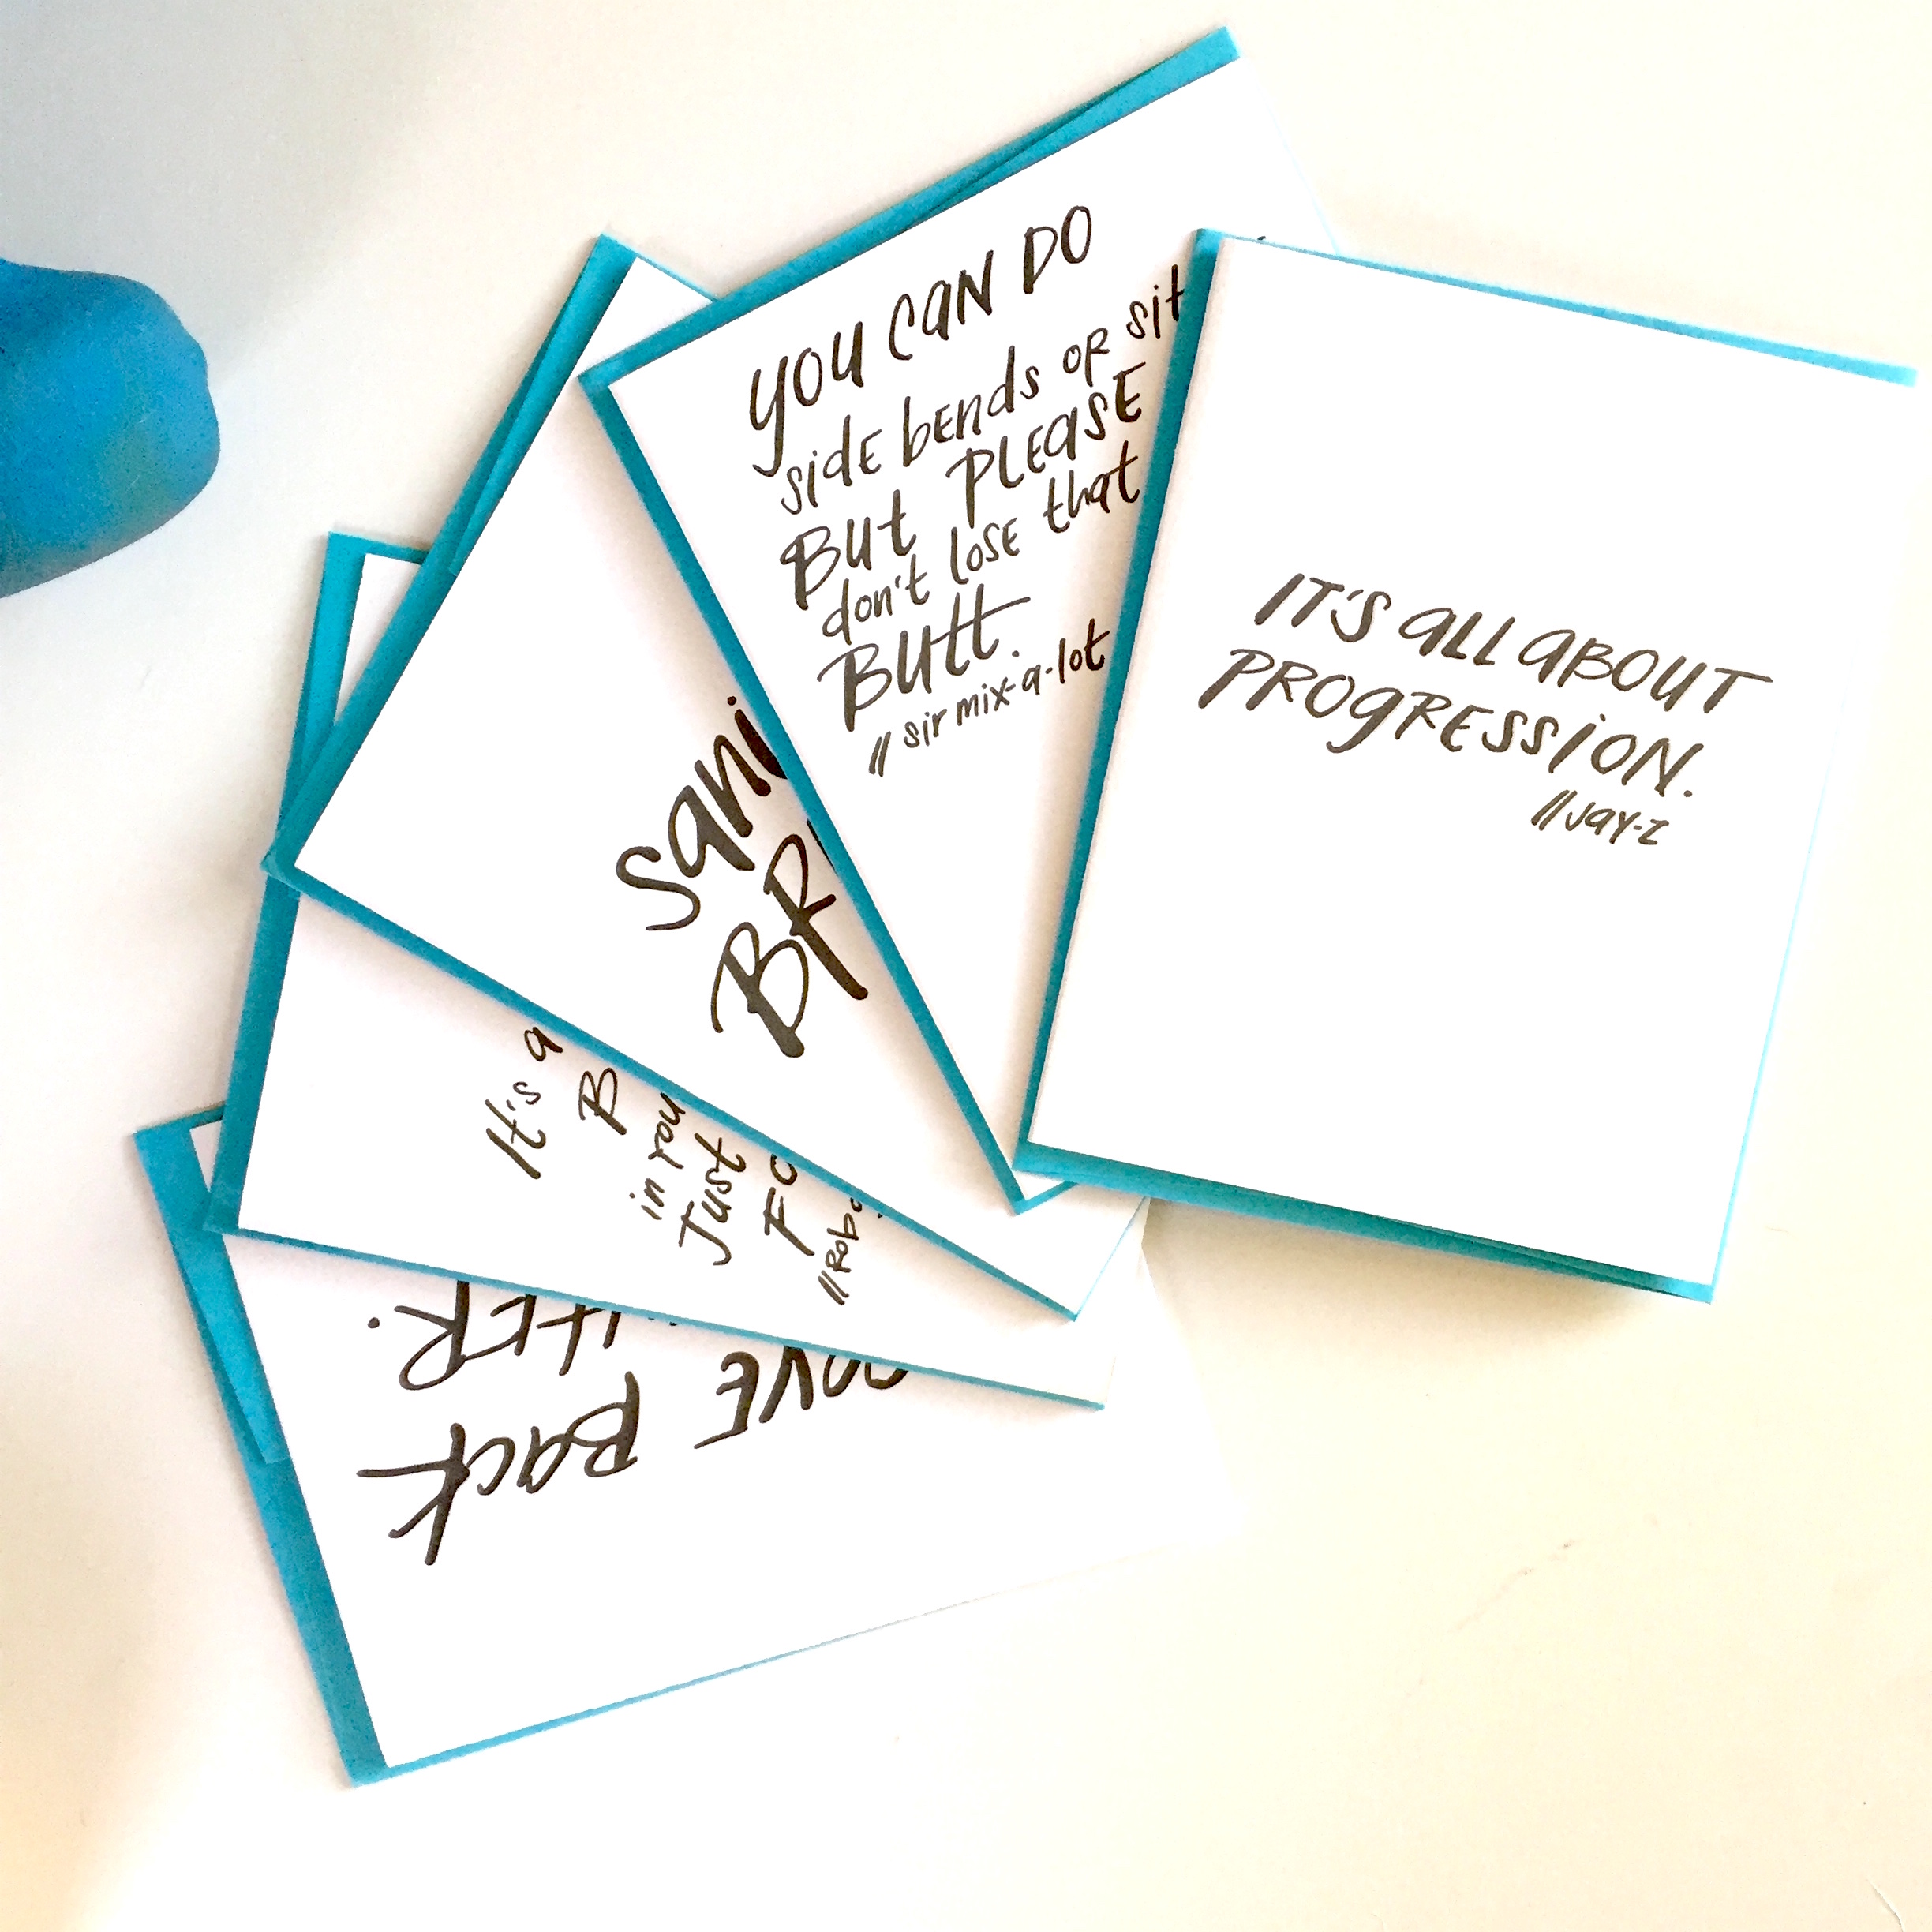 YOU CAN DO
side bends or sit
But PLEASE
don't lose that
Butt.
// sir mix-a-lot
IT'S ALL ABOUT
PROGRESSION.
// JAY-Z
It's a
B
in rou
Just
FO
BACK